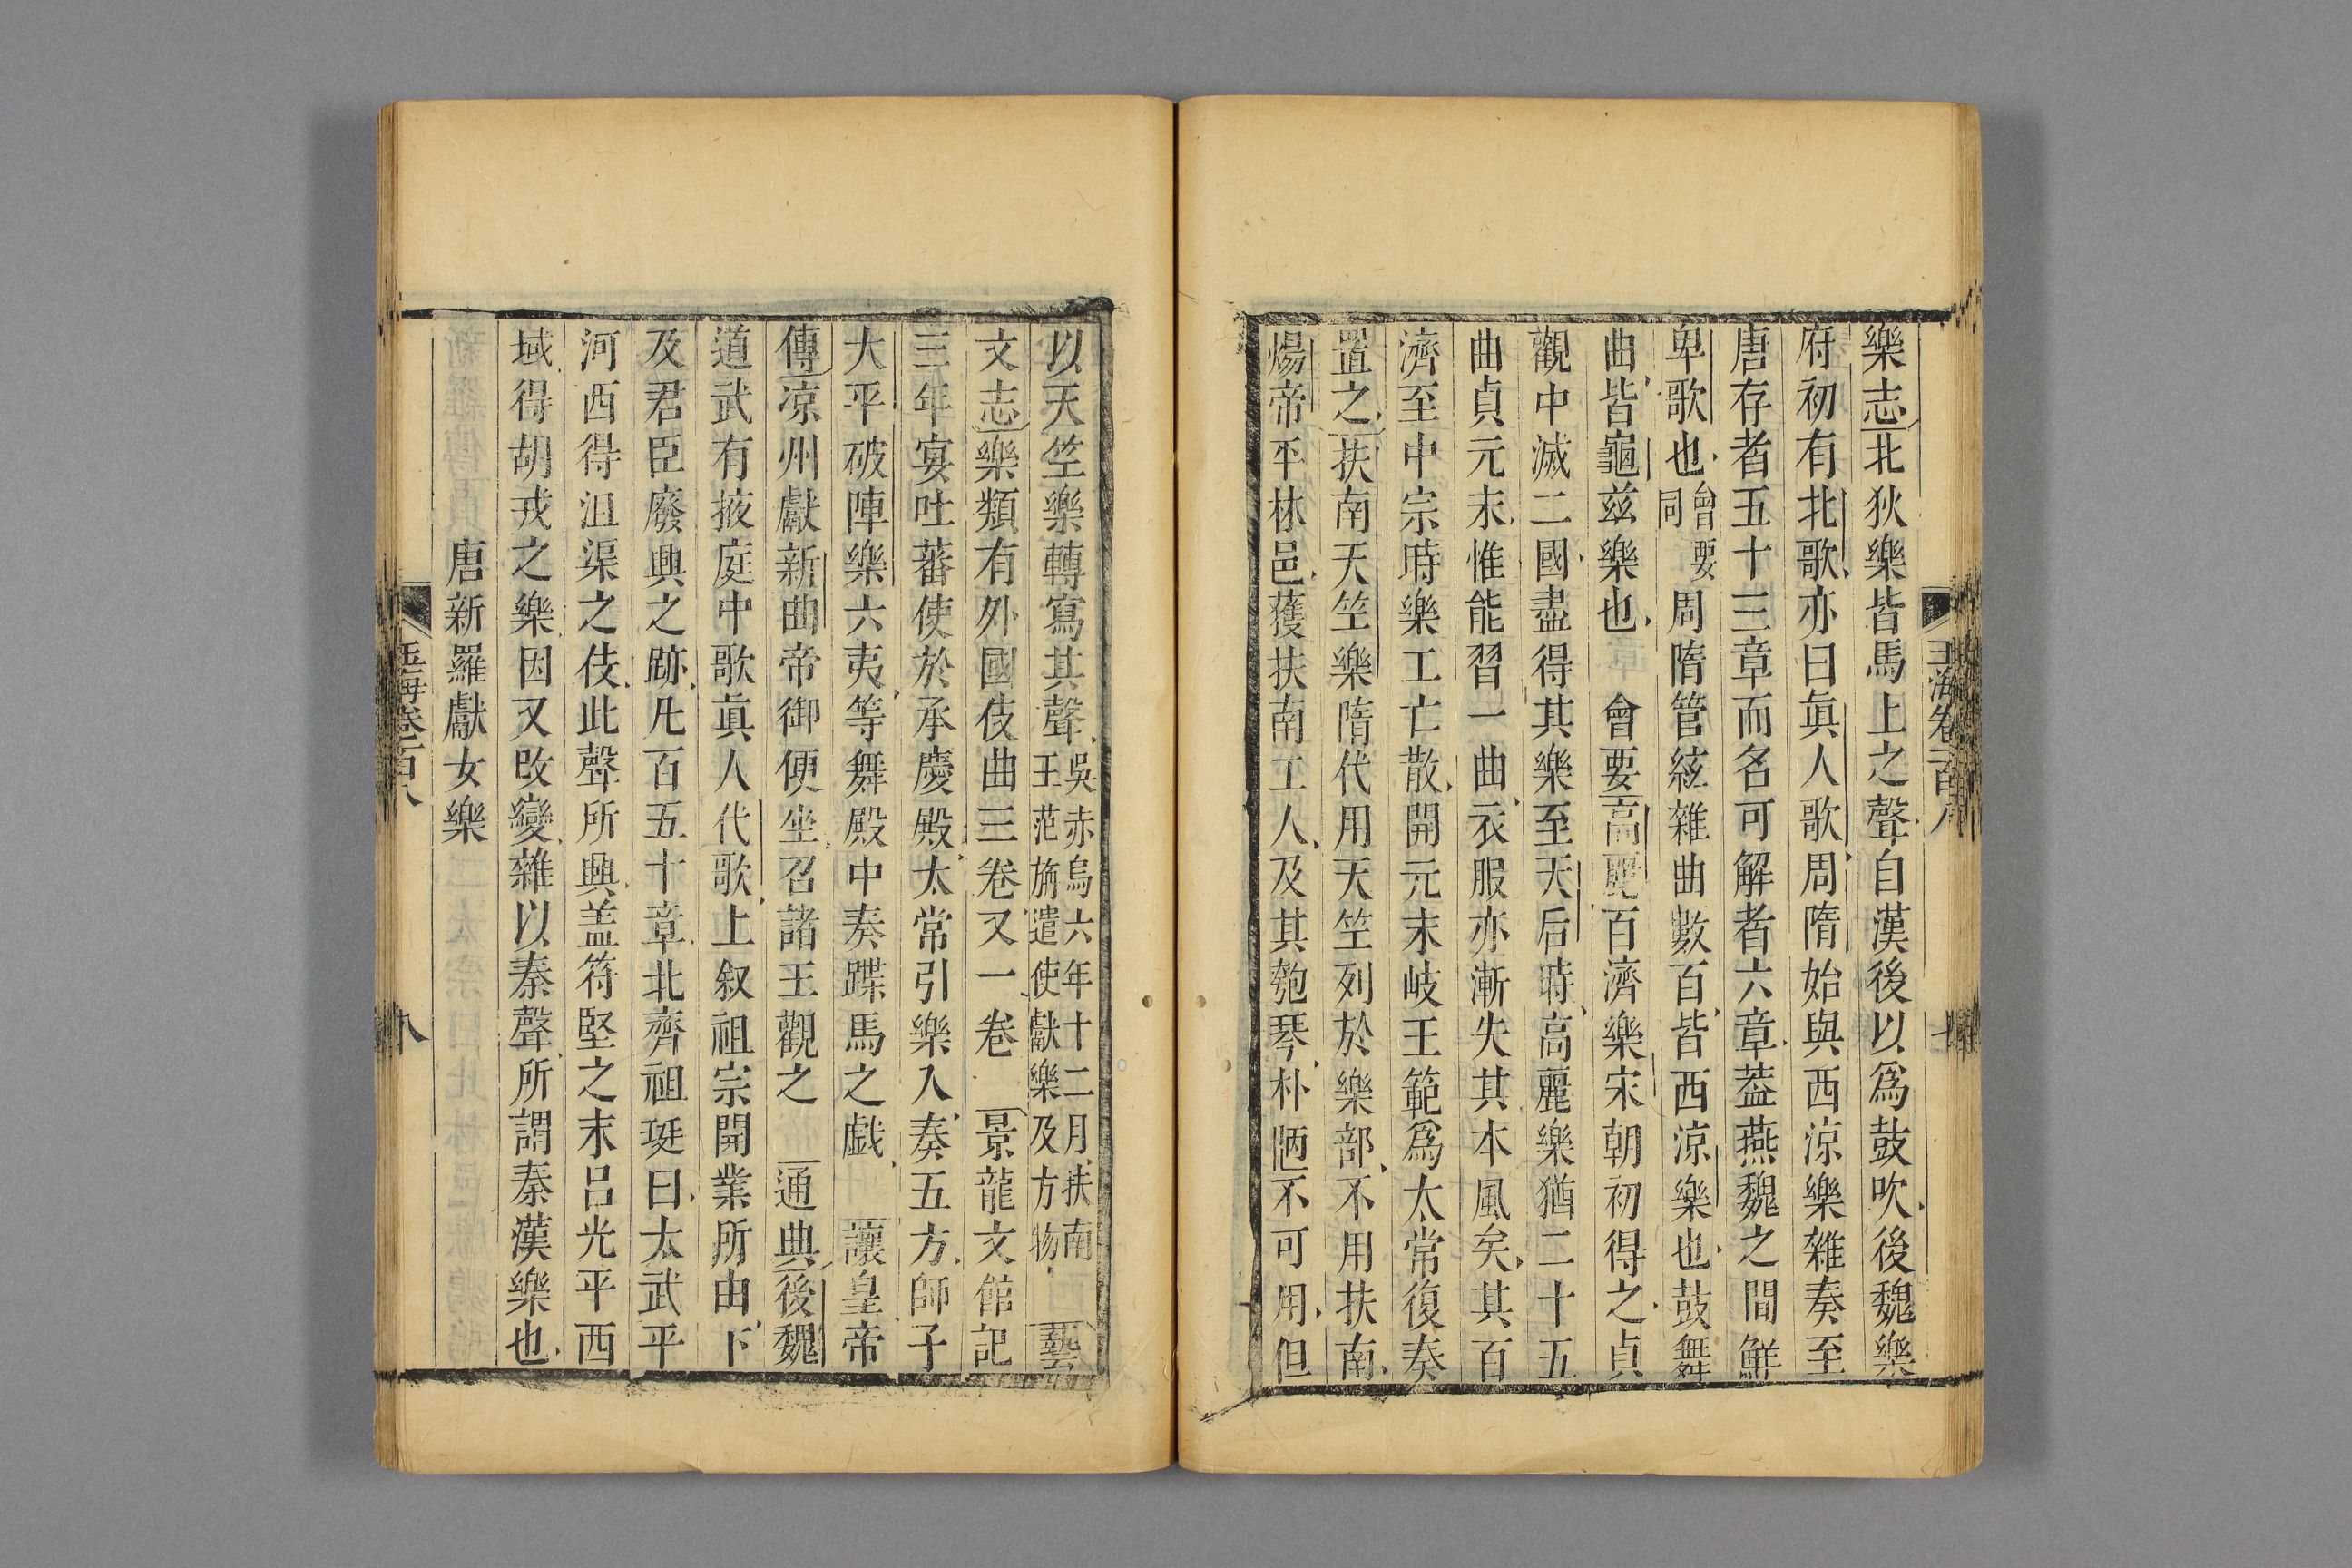 樂志北狄樂皆馬上之聲自漢後以爲鼓吹後魏樂
府初有北歌亦曰眞人歌周隋始與西涼樂雜奏至
唐存者五十三章而名可解者六章葢燕魏之間鮮
卑歌也會要同周隋管絃雜曲數百皆西涼樂也鼓舞
曲皆龜兹樂也 會要高麗百濟樂宋朝初得之貞
觀中滅二國盡得其樂至天后時高麗樂猶二十五
曲貞元末惟能習一曲衣服亦漸失其本風矣其百
濟至中宗時樂工亡散開元末岐王範爲太常復奏
置之扶南天竺樂隋代用天竺列於樂部不用扶南
煬帝平林邑獲扶南工人及其匏琴朴陋不可用但
玉海卷一百八
七
以天竺樂轉寫其聲吳赤烏六年十二月扶南王范旃遣使獻樂及方物 藝
文志樂類有外國伎曲三卷又一卷 景龍文館記
三年宴吐蕃使於承慶殿太常引樂入奏五方師子
大平破陣樂六夷等舞殿中奏蹀馬之戱 讓皇帝
傳涼州獻新曲帝御便坐召諸王觀之 通典後魏
道武有掖庭中歌眞人代歌上叙祖宗開業所由下
及君臣廢興之跡凡百五十章北齊祖珽曰太武平
河西得沮渠之伎此聲所興盖苻堅之末呂光平西
域得胡戎之樂因又改變雜以秦聲所謂秦漢樂也
唐新羅獻女樂
玉海卷一百八
八